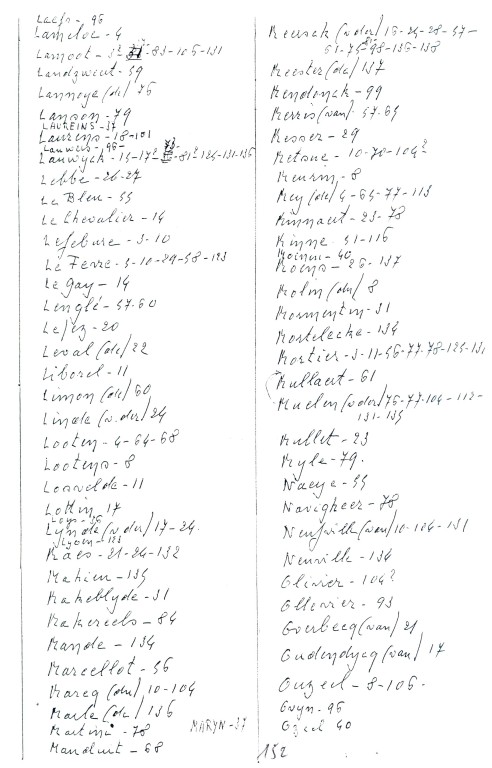 Laefs - 96
Lameloc - 4
Lamoot - 3² - 83-105-131
Landzweut - 59
Lannoye (de) 76
Lanson - 79
LAUREINS - 37
Laureyns - 18-101
Lauwers - 96-
Lauwyck - 15-17²- 81²-124-131-136
Lebbe - 26-27
Le Bleu - 55
Le Chevalier - 14
Lefebure - 3-10
Le Ferre - 3-10-29-58-123
Le gay - 14
Lenglé - 57-60
Lejez - 20
Leval (de) 22
Liborel - 11
Limon (de) 60
Linde (v.der) 24
Looten - 4-64-68
Lootens - 8
Losvelde - 11
Lottin 17
Loys - 96
Lynde (v.der) 17-24.
Lyoen - 123
Maes - 21-24-132
Mahieu - 135
Makeblyde - 31
Makereels - 84
Mande - 134
Marcellot - 56
Marcq (du) 10-104
Marle (de) 136
Martini - 78 MARYN - 37
Mauduit - 68
Meersch (v.der) 15-24-28-57-
51-75-98-135-138
Meester (de) 137
Mendonck - 99
Merris (van) 57-65
Messer - 29
Metsue - 10-70-104²
Meurin - 8
Mey (de) 4-65-77-113
Minnaert - 23-78
Minne 51-116
Moenin - 40
Moens - 26-137
Molin (du) 8
Mormentin - 31
Mostelecke - 134
Mortier - 3-11-56-77-78-125-131
Mullaert - 61
Muelen (v.der) 75-77-104-112-
131-135
Mullet - 23
Myle - 79.
Naeye - 55
Navigheer - 78
Neufville (van) 10-104-131
Neuville - 134
Olivier - 104²
Ollevier - 93
Overbecq (van) 21
Oudendycq (van) 17
Ouzeel - 8-106-
Ovyn - 96
Ozeel 40
152